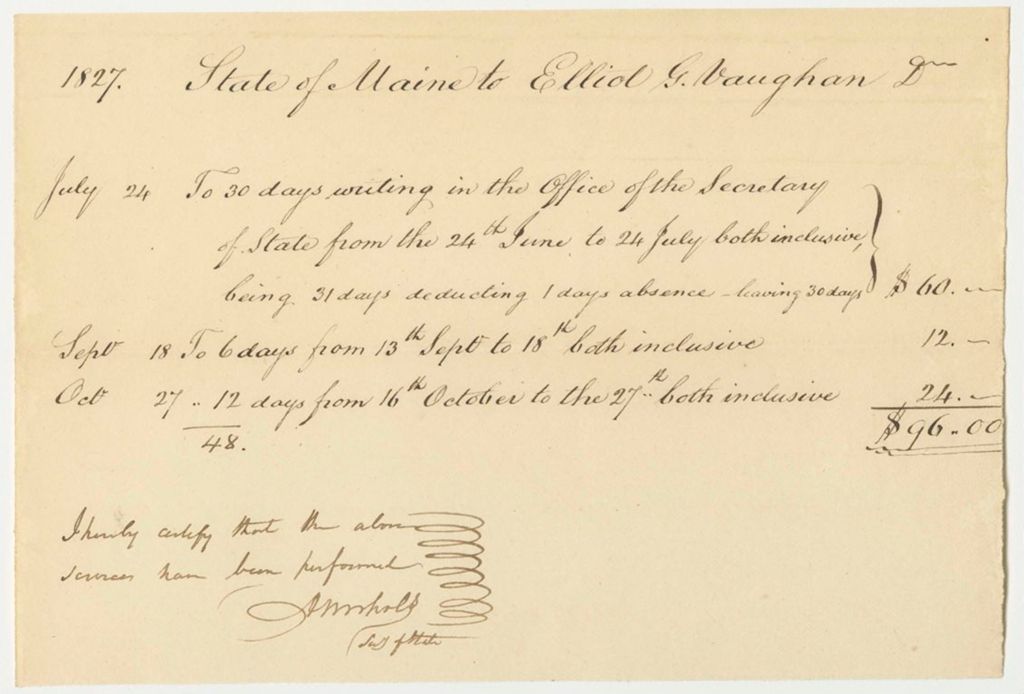 1827. State of Maine to Elliot G. Vaughan Dr
July 24 To 30 days writing in the Office of the Secretary
of State from the 24th June to 24 July both inclusive,
being 31 days deducting 1 days absence - leaving 30 days $60.—
Sept 18 To 6 days from 13th Sept to 18th both inclusive 12.—
Oct 27 .. 12 days from 16th October to the 27th both inclusive 24.—
48. $96..00
I hereby certify that the above
services have been performed
Secy of State